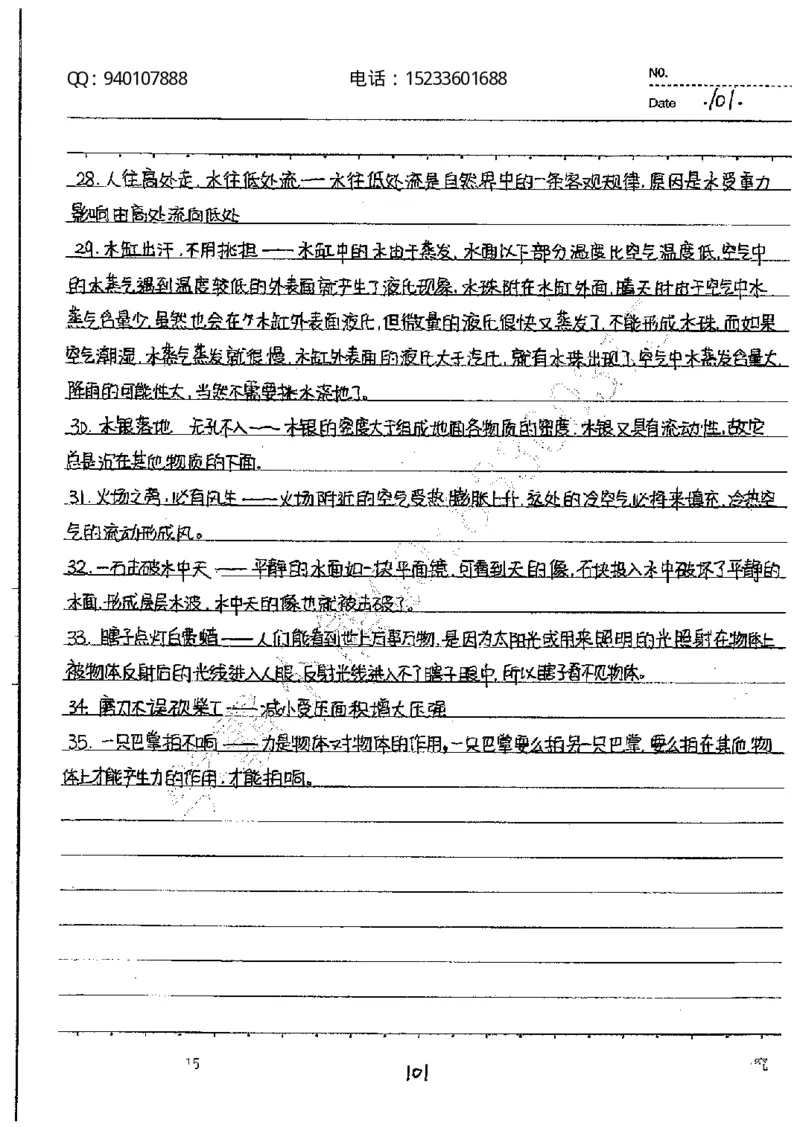 QQ：940107888 电话：15233601688 NO.
Date ·101·
28.人往高处走,水往低处流——水往低处流是自然界中的一条客观规律,原因是水受重力
影响由高处流向低处
29.水缸出汗,不用挑担——水缸中的水由于蒸发,水面以下部分温度比空气温度低,空气中
的水蒸气遇到温度较低的外表面就产生了液化现象,水珠附在水缸外面,晴天时由于空气中水
蒸气含量少,虽然也会在水缸外表面液化,但微量的液化很快又蒸发了,不能形成水珠,而如果
空气潮湿,水蒸气蒸发就很慢,水缸外表面的液化大于汽化,就有水珠出现了,空气中水蒸发含量大,
降雨的可能性大,当然不需要挑水浇地了。
30.水银落地 无孔不入——水银的密度大于组成地面各物质的密度.水银又具有流动性,故它
总是沉在其他物质的下面。
31.火场之旁,必有风生——火场附近的空气受热膨胀上升,远处的冷空气必将来填充,冷热空
气的流动形成风。
32.一石击破水中天——平静的水面如一块平面镜,可看到天的像,石块投入水中破坏了平静的
水面,形成层层水波,水中天的像也就被击破了。
33.瞎子点灯白费蜡——人们能看到世上万事万物,是因为太阳光或用来照明的光照射在物体上
被物体反射后的光线进入人眼,反射光线进入不了瞎子眼中,所以瞎子看不见物体。
34.磨刀不误砍柴工——减小受压面积增大压强
35.一只巴掌拍不响——力是物体对物体的作用,一只巴掌要么拍另一只巴掌,要么拍在其他物
体上才能产生力的作用,才能拍响。
15 101